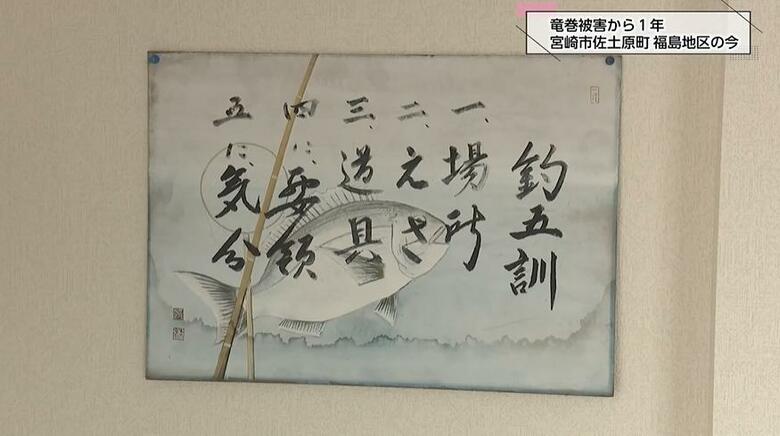 竜巻被害から1年
宮崎市佐土原町 福島地区の今
釣五訓
一、場所
二、えさ
三、道具
四に、要領
五に、気分